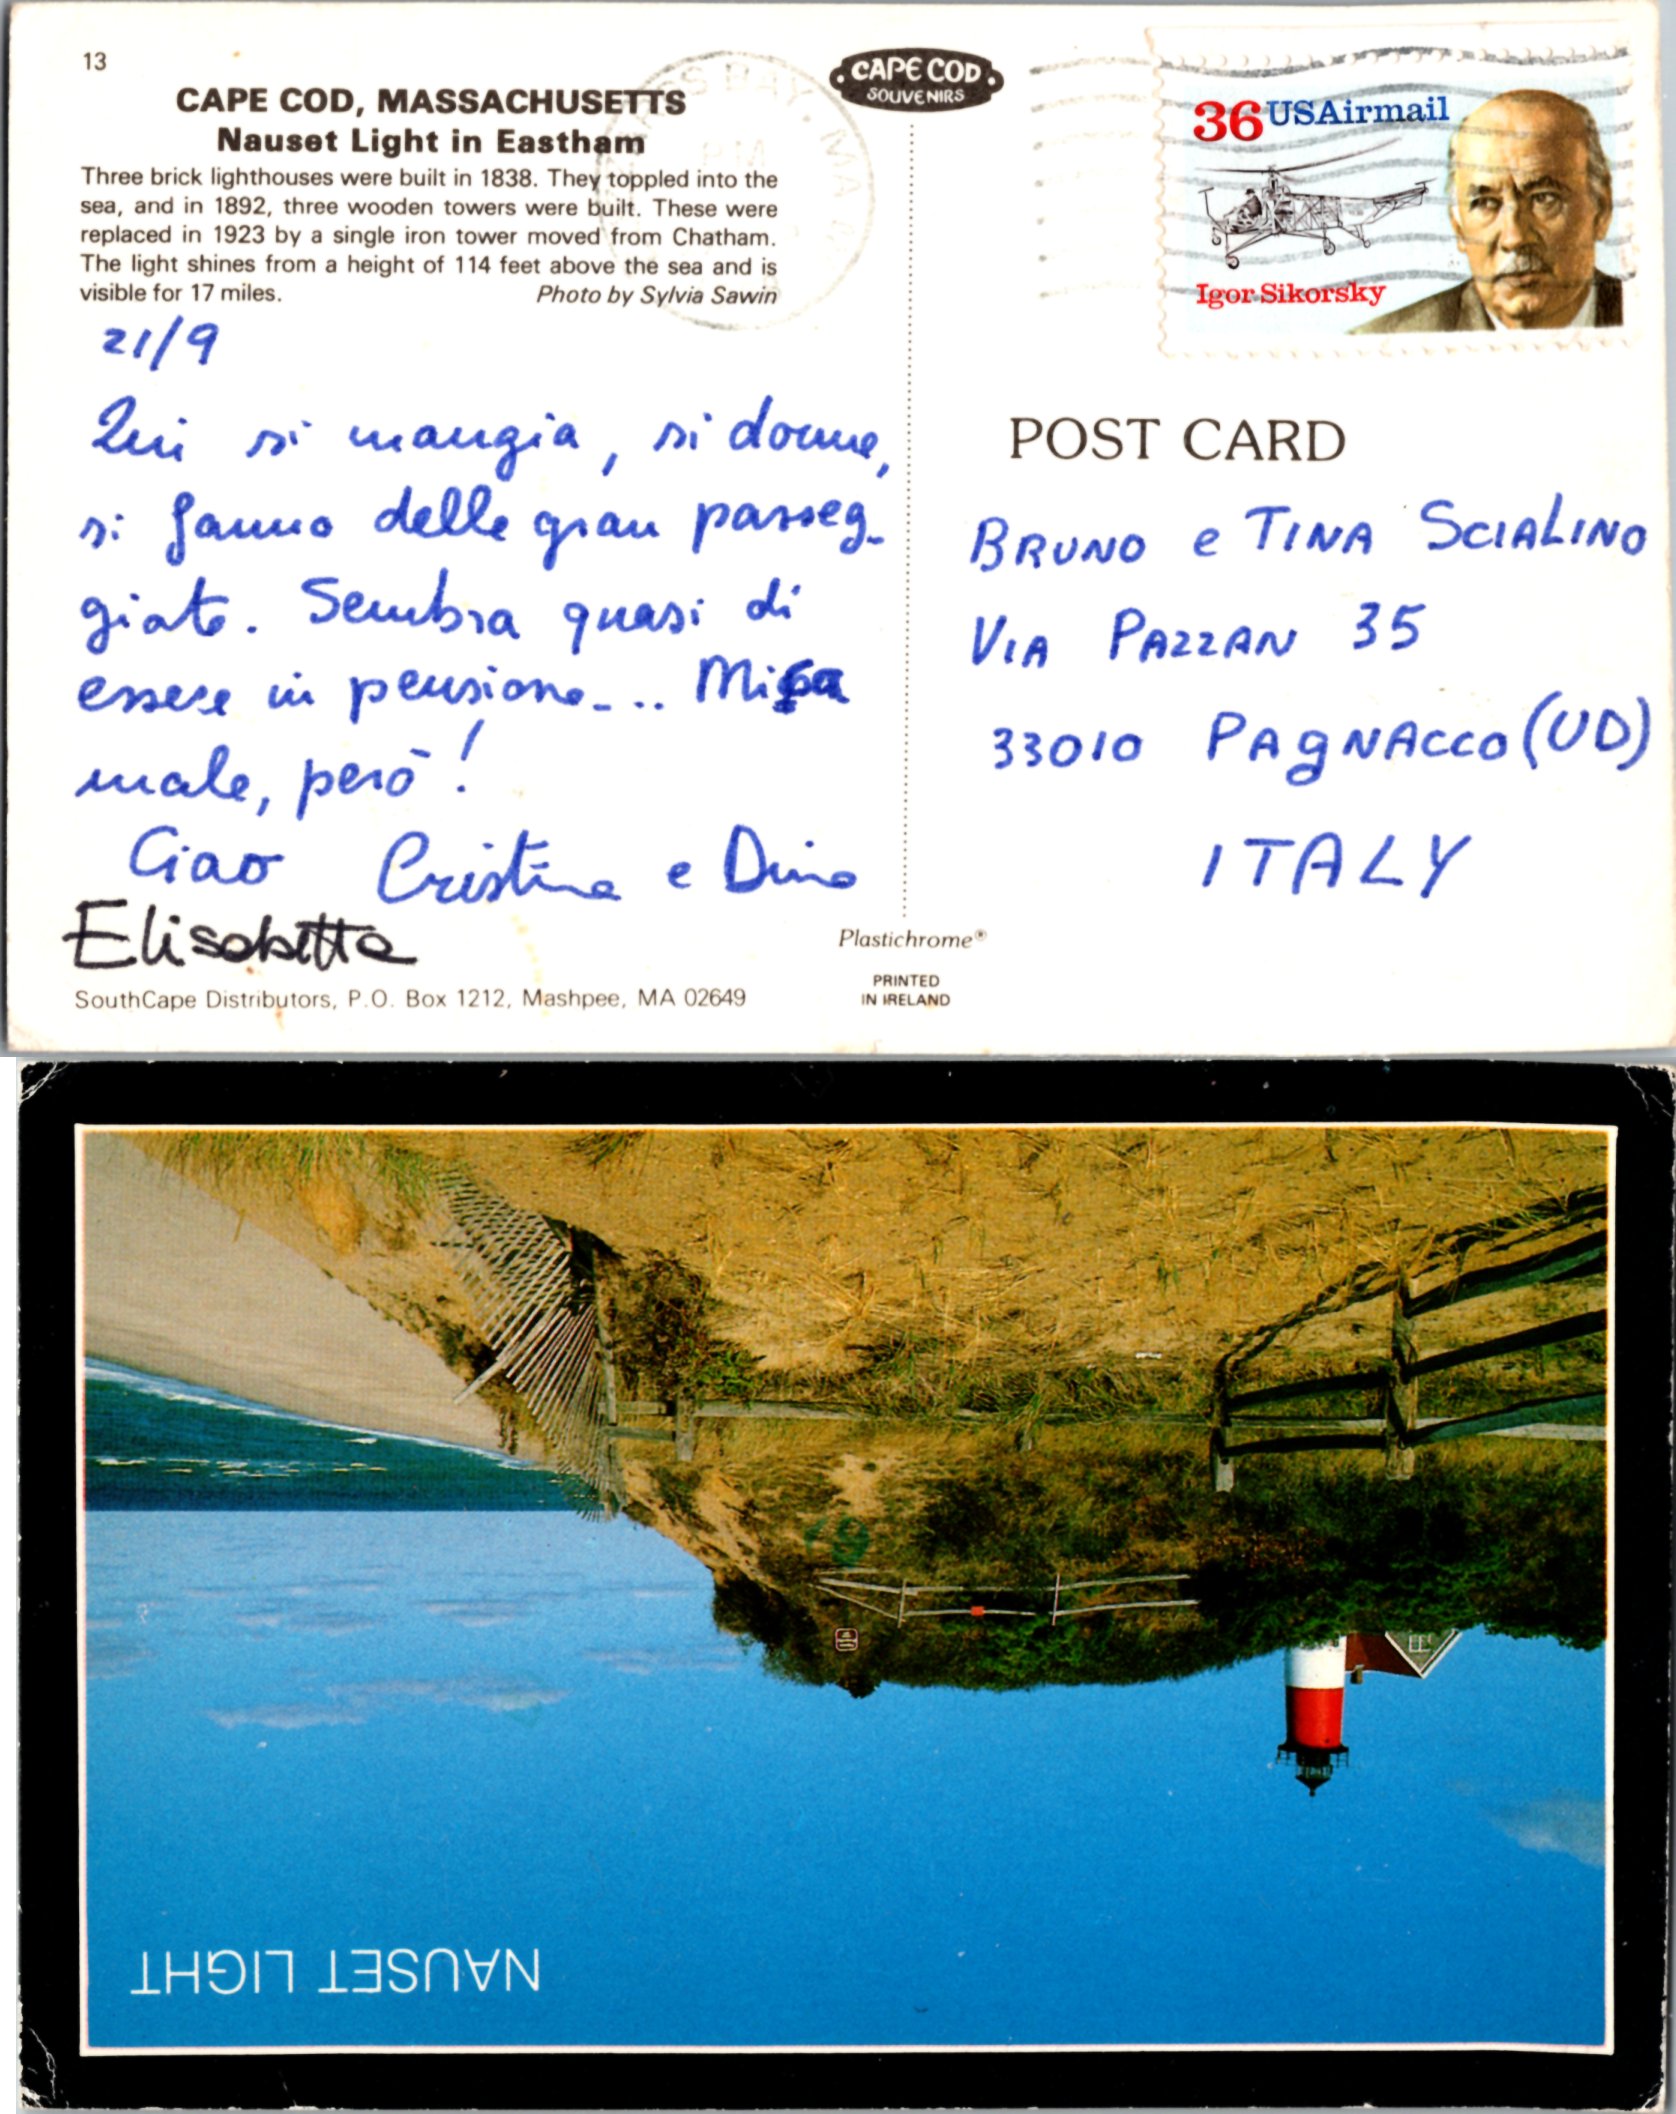 13
CAPE COD, MASSACHUSETTS
Nauset Light in Eastham
Three brick lighthouses were built in 1838. They toppled into the
sea, and in 1892, three wooden towers were built. These were
replaced in 1923 by a single iron tower moved from Chatham.
The light shines from a height of 114 feet above the sea and is
visible for 17 miles.
Photo by Sylvia Sawin
21/9
Qui si mangia, si dorme,
si fanno delle gran passeg-
giate. Sembra quasi di
essere in pensione... Mica
male, però!
Ciao Cristina e Dino
Elisabetta
SouthCape Distributors, P.O. Box 1212, Mashpee, MA 02649
CAPE COD
SOUVENIRS
PM
Plastichrome®
PRINTED
IN IRELAND
36 USAirmail
Igor Sikorsky
POST CARD
BRUNO e TINA SCIALINO
VIA PAZZAN 35
33010 PAGNACCO (UD)
ITALY
NAUSET LIGHT